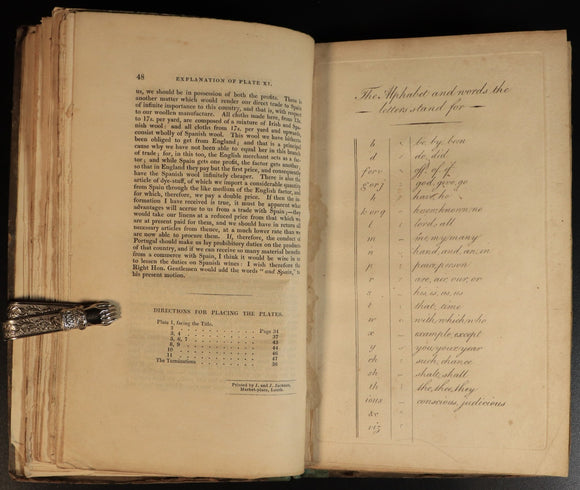 48 EXPLANATION OF PLATE XI.
us, we should be in possession of both the profits. There is
another matter which would render our direct trade to Spain
of infinite importance to this country, and that is, with respect
to our woollen manufacture. All cloths made here, from 12s.
to 17s. per yard, are composed of a mixture of Irish and Spa-
nish wool; and all cloths from 17s. per yard and upwards,
consist wholly of Spanish wool. This wool we have hitherto
been obliged to get from England; and that is a principal
cause why we have not been able to equal her in this branch
of trade; for, in this too, the English merchant acts as a fac-
tor; and while Spain gets one profit, the factor gets another;
so that in England they pay but the first price, and consequently
have the Spanish wool infinitely cheaper. There is also the
article of dye-stuff, of which we import a considerable quantity
from Spain through the like medium of the English factor, and
for which, therefore, we pay a double price. If then the in-
formation I have received is true, it must be apparent what
advantages will accrue to us from a trade with Spain;—they
would take our linens at a reduced price from that which we
are at present paid for them, and we should have in return all
necessary articles from thence, at a much lower rate than we
are now able to procure them. If, therefore, the conduct of
Portugal should make us lay prohibitory duties on the products
of that country, and if we can receive so many material benefits
from a commerce with Spain, I think it would be wise in us
to lessen the duties on Spanish wines: I wish therefore the
Right Hon. Gentlemen would add the words "and Spain," to
his present motion.
DIRECTIONS FOR PLACING THE PLATES.
Plate 1, facing the Title.
3, 4 Page 34
5, 6, 7 37
8, 9 43
10 44
11 46
The Terminations 36
Printed by J. and J. Jackson,
Market-place, Louth.
The Alphabet and words the
letters stand for
b be, by, been
d do, did
f or v off, of, if
g or j god, give, go
h have, he
k or q know, known, no
l lord, all
m me, my, many
n hand, and, an, in
p peace, person
r are, air, our, or
s his, is, as, us
t that, time
w with, which, who
x example, except
y you, your, year
ch such, chance
sh shalt, shall
th the, thee, they
ious conscious, judicious
&c
viz